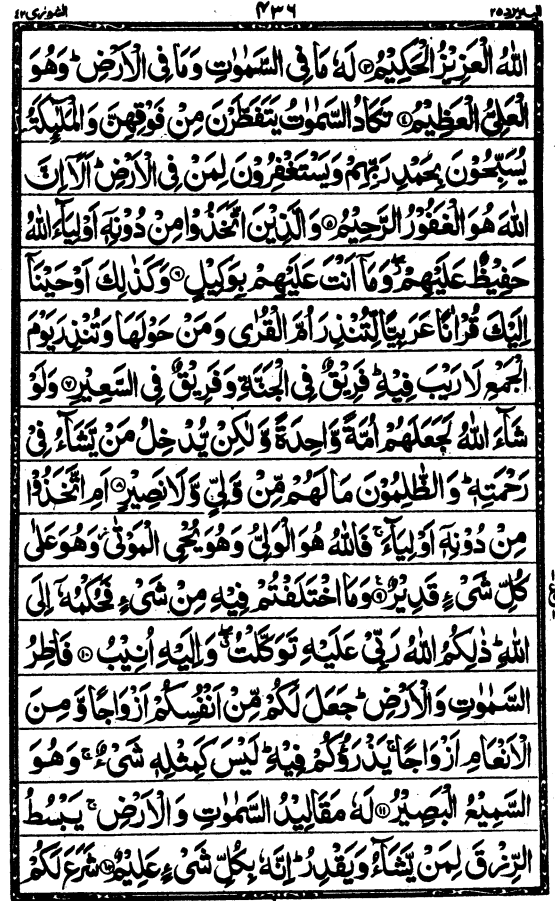 اليه يرد ٢٥ ٤٣٦ الشورى ٤٢
اللّٰهُ الْعَزِيْزُ الْحَكِيْمُ ﴿٣﴾ لَهٗ مَا فِى السَّمٰوٰتِ وَمَا فِى الْاَرْضِ ؕ وَهُوَ
الْعَلِىُّ الْعَظِيْمُ ﴿٤﴾ تَكَادُ السَّمٰوٰتُ يَتَفَطَّرْنَ مِنْ فَوْقِهِنَّ وَالْمَلٰٓئِكَةُ
يُسَبِّحُوْنَ بِحَمْدِ رَبِّهِمْ وَيَسْتَغْفِرُوْنَ لِمَنْ فِى الْاَرْضِ ؕ اَلَاۤ اِنَّ
اللّٰهَ هُوَ الْغَفُوْرُ الرَّحِيْمُ ﴿٥﴾ وَالَّذِيْنَ اتَّخَذُوْا مِنْ دُوْنِهٖۤ اَوْلِيَآءَ اللّٰهُ
حَفِيْظٌ عَلَيْهِمْ ۖ وَمَاۤ اَنْتَ عَلَيْهِمْ بِوَكِيْلٍ ﴿٦﴾ وَكَذٰلِكَ اَوْحَيْنَاۤ
اِلَيْكَ قُرْاٰنًا عَرَبِيًّا لِّتُنْذِرَ اُمَّ الْقُرٰى وَمَنْ حَوْلَهَا وَتُنْذِرَ يَوْمَ
الْجَمْعِ لَا رَيْبَ فِيْهِ ؕ فَرِيْقٌ فِى الْجَنَّةِ وَفَرِيْقٌ فِى السَّعِيْرِ ﴿٧﴾ وَلَوْ
شَآءَ اللّٰهُ لَجَعَلَهُمْ اُمَّةً وَّاحِدَةً وَّلٰكِنْ يُّدْخِلُ مَنْ يَّشَآءُ فِىْ
رَحْمَتِهٖ ؕ وَالظّٰلِمُوْنَ مَا لَهُمْ مِّنْ وَّلِىٍّ وَّلَا نَصِيْرٍ ﴿٨﴾ اَمِ اتَّخَذُوْا
مِنْ دُوْنِهٖۤ اَوْلِيَآءَ ۚ فَاللّٰهُ هُوَ الْوَلِىُّ وَهُوَ يُحْىِ الْمَوْتٰى ۫ وَهُوَ عَلٰى
كُلِّ شَىْءٍ قَدِيْرٌ ﴿٩﴾ وَمَا اخْتَلَفْتُمْ فِيْهِ مِنْ شَىْءٍ فَحُكْمُهٗۤ اِلَى
اللّٰهِ ؕ ذٰلِكُمُ اللّٰهُ رَبِّىْ عَلَيْهِ تَوَكَّلْتُ ۖ وَاِلَيْهِ اُنِيْبُ ﴿١٠﴾ فَاطِرُ
السَّمٰوٰتِ وَالْاَرْضِ ؕ جَعَلَ لَكُمْ مِّنْ اَنْفُسِكُمْ اَزْوَاجًا وَّ مِنَ
الْاَنْعَامِ اَزْوَاجًا ۚ يَذْرَؤُكُمْ فِيْهِ ؕ لَيْسَ كَمِثْلِهٖ شَىْءٌ ۚ وَهُوَ
السَّمِيْعُ الْبَصِيْرُ ﴿١١﴾ لَهٗ مَقَالِيْدُ السَّمٰوٰتِ وَالْاَرْضِ ۚ يَبْسُطُ
الرِّزْقَ لِمَنْ يَّشَآءُ وَيَقْدِرُ ؕ اِنَّهٗ بِكُلِّ شَىْءٍ عَلِيْمٌ ﴿١٢﴾ شَرَعَ لَكُمْ